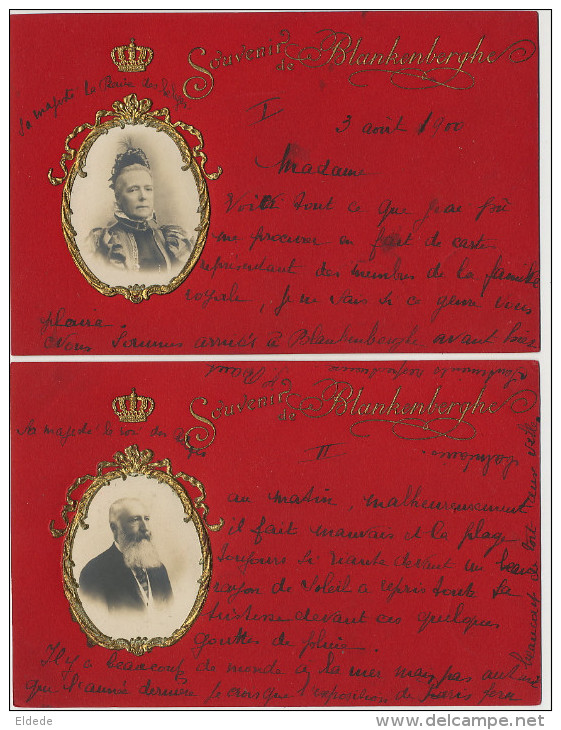 Souvenir de Blankenberghe
Sa majesté la Reine des Belges
I
3 août 1900
Madame
Voici tout ce que j'ai pû
me procurer en fait de cartes
représentant des membres de la famille
royale, je ne sais si ce genre vous
plaira.
Nous sommes arrivés à Blankenberghe avant hier
Souvenir de Blankenberghe
Sa majesté le roi des Belges
II
au matin, malheureusement
il fait mauvais et la plage
toujours si riante devant un beau
rayon de soleil a repris toute sa
tristesse devant ces quelques
gouttes de pluie.
Il y a beaucoup de monde à la mer mais pas autant
que l'année dernière je crois que l'exposition de Paris fera
beaucoup de tort
Eldede
www.delcampe.net